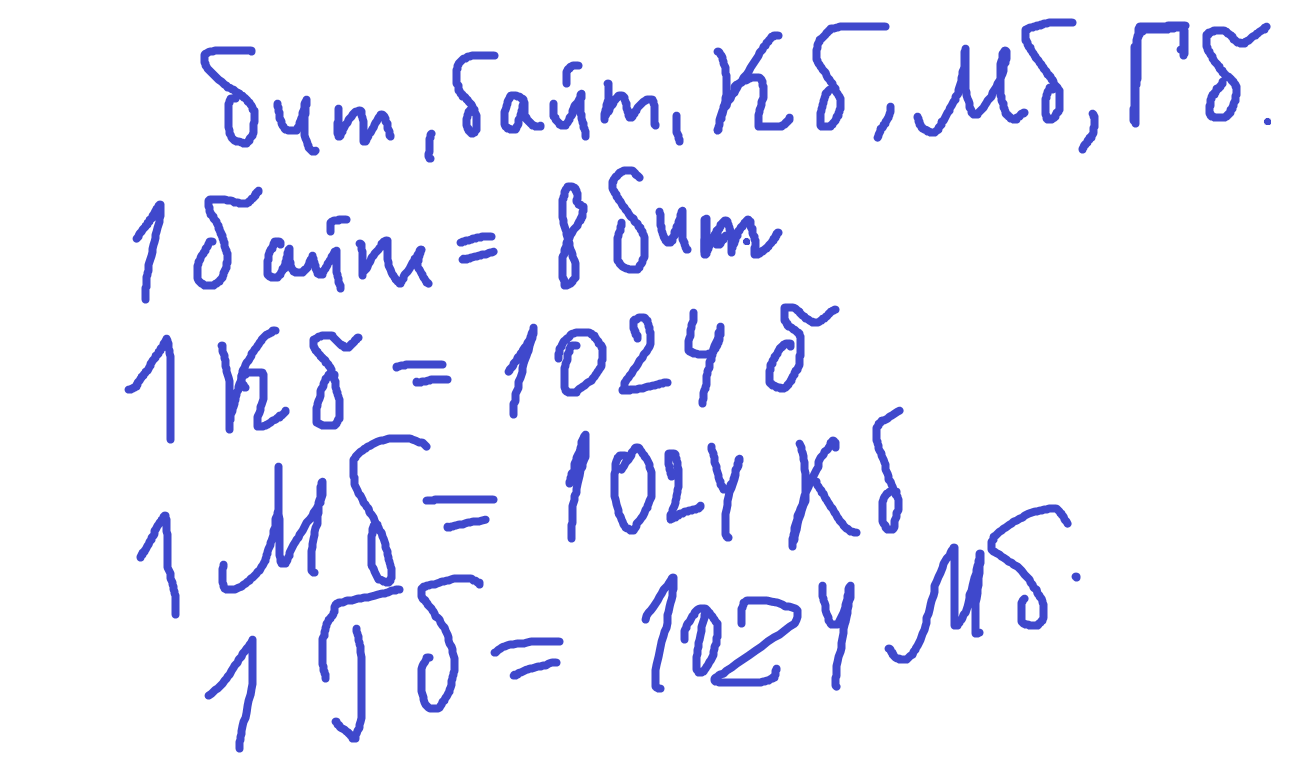 бит, байт, Кб, Мб, Гб.
1 байт = 8 бит
1 Кб = 1024 б
1 Мб = 1024 Кб
1 Гб = 1024 Мб.